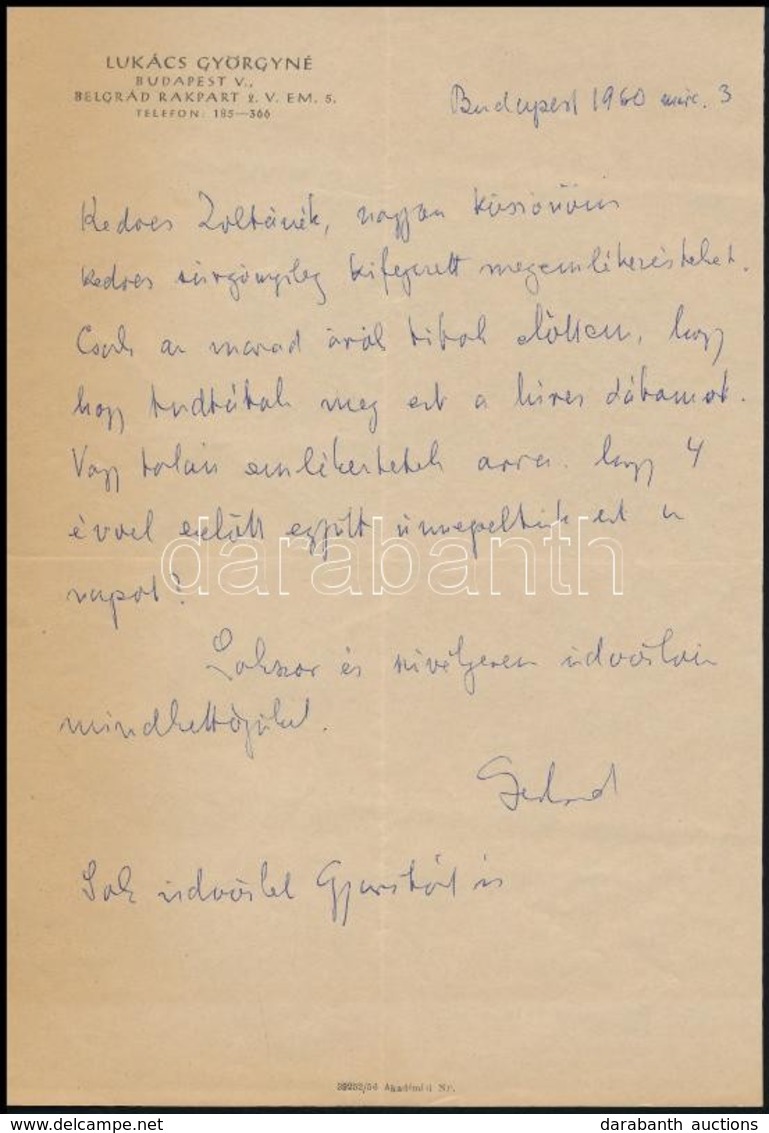 LUKÁCS GYÖRGYNÉ
BUDAPEST V.,
BELGRÁD RAKPART 2. V. EM. 5.
TELEFON: 185—366
Budapest 1960 márc. 3
Kedves Zoltánék, nagyon köszönöm
kedves sürgönyileg kifejezett megemlékezésteket.
Csak az marad örök titok előttem, hogy
hogy tudtátok meg ezt a híres dátumot.
Vagy talán emlékeztetek arra, hogy 4
évvel ezelőtt együtt ünnepeltük ezt a
napot?
Sokszor és szívélyesen üdvözlöm
mindkettőjüket.
Gertrud
Sok üdvözlet Gyuritól is
39252/56 Akadémiai Ny.
darabanth
darabanth auctions